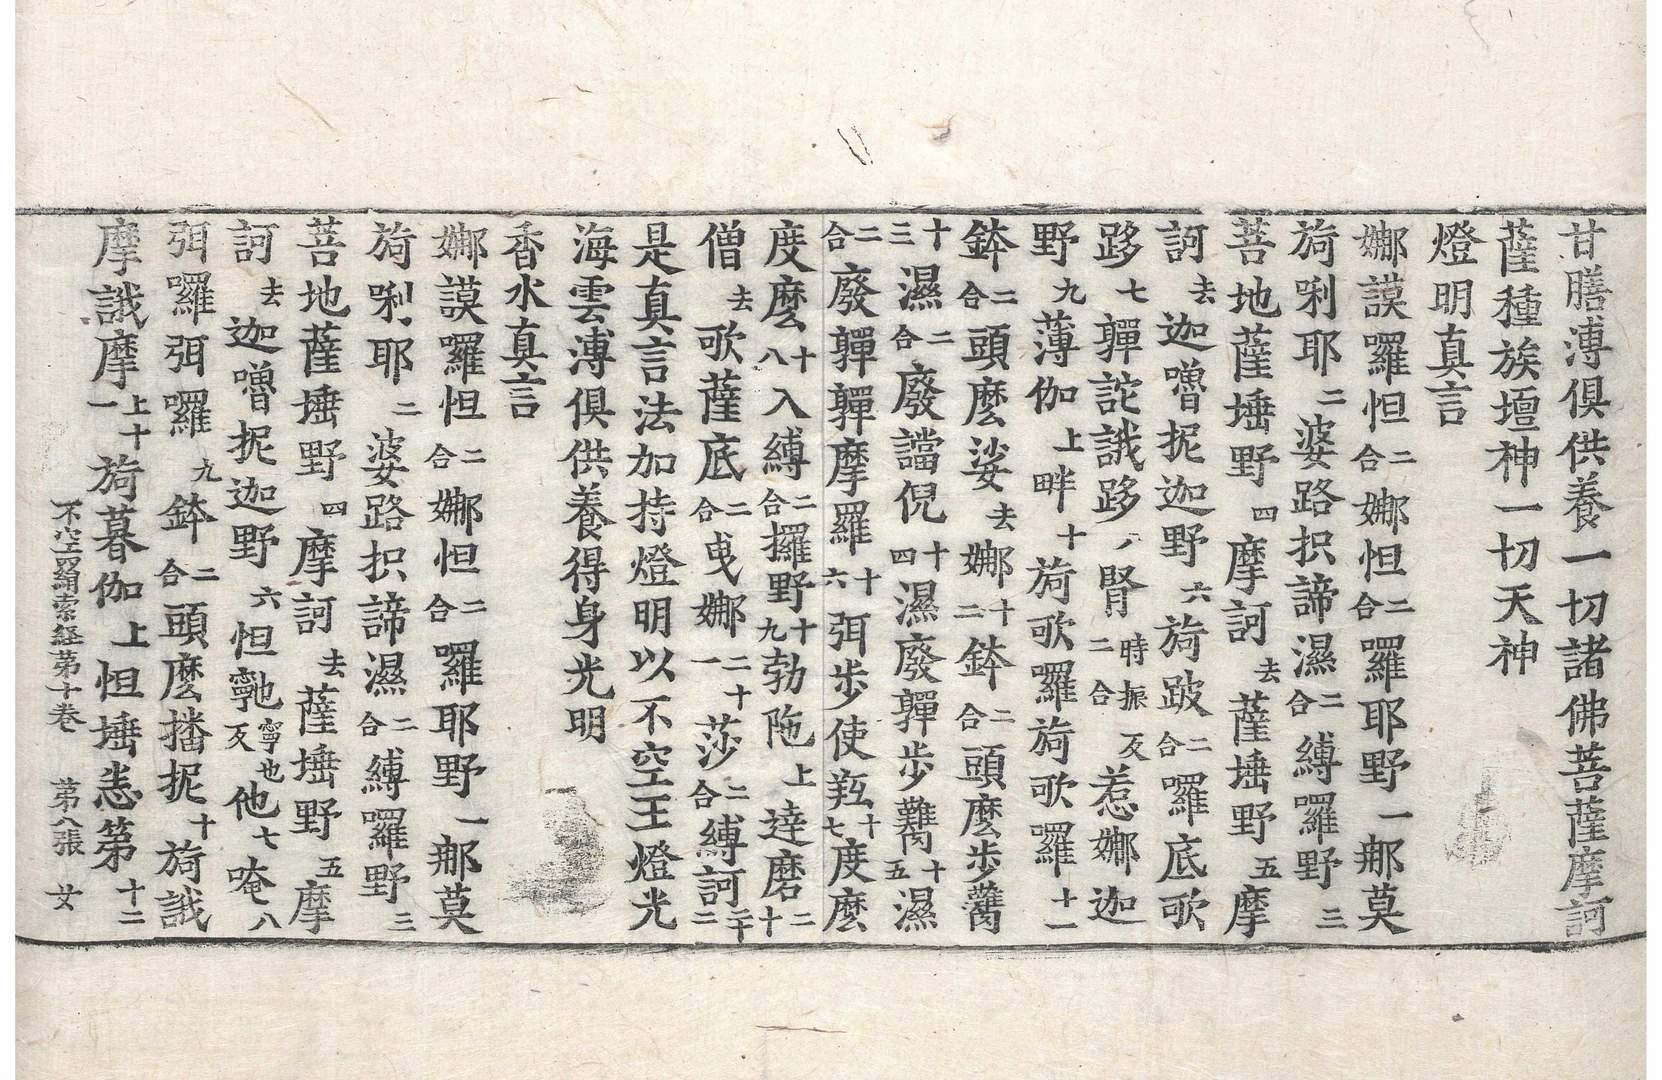 甘膳溥俱供養一切諸佛菩薩摩訶
薩種族壇神一切天神
燈明真言
娜謨囉怛二合娜怛二合囉耶野一娜莫
旖唎耶二婆路抧諦濕二合縛囉野三
菩地薩埵野四摩訶去薩埵野五摩
訶去迦嚕抳迦野六旖跛二合囉底歌
跢七軃詑誐跢八腎時振反二合惹娜迦
野九薄伽上畔十旖歌囉旖歌囉十一
鉢二合頭麼娑去娜十二鉢二合頭麼步
十三濕二合廢譡倪十四濕廢軃步十五濕
二合廢軃軃摩羅十六弭步使羝十七度麼
度麼十八入縛二合攞野十九勃陁上達磨二十
僧去歌薩底二合曵娜二十一莎二合縛訶二十二
是真言法加持燈明以不空王燈光
海雲溥俱供養得身光明
香水真言
娜謨囉怛二合娜怛二合囉耶野一娜莫
旖唎耶二婆路抧諦濕二合縛囉野三
菩地薩埵野四摩訶去薩埵野五摩
訶去迦嚕抳迦野六怛寧也寧也反他七唵八
弭囉弭囉九鉢二合頭麼播抳十旖誐
摩誐摩上十一旖暮伽上怛埵恙第十二
不空羂索経第十卷 第八張 女